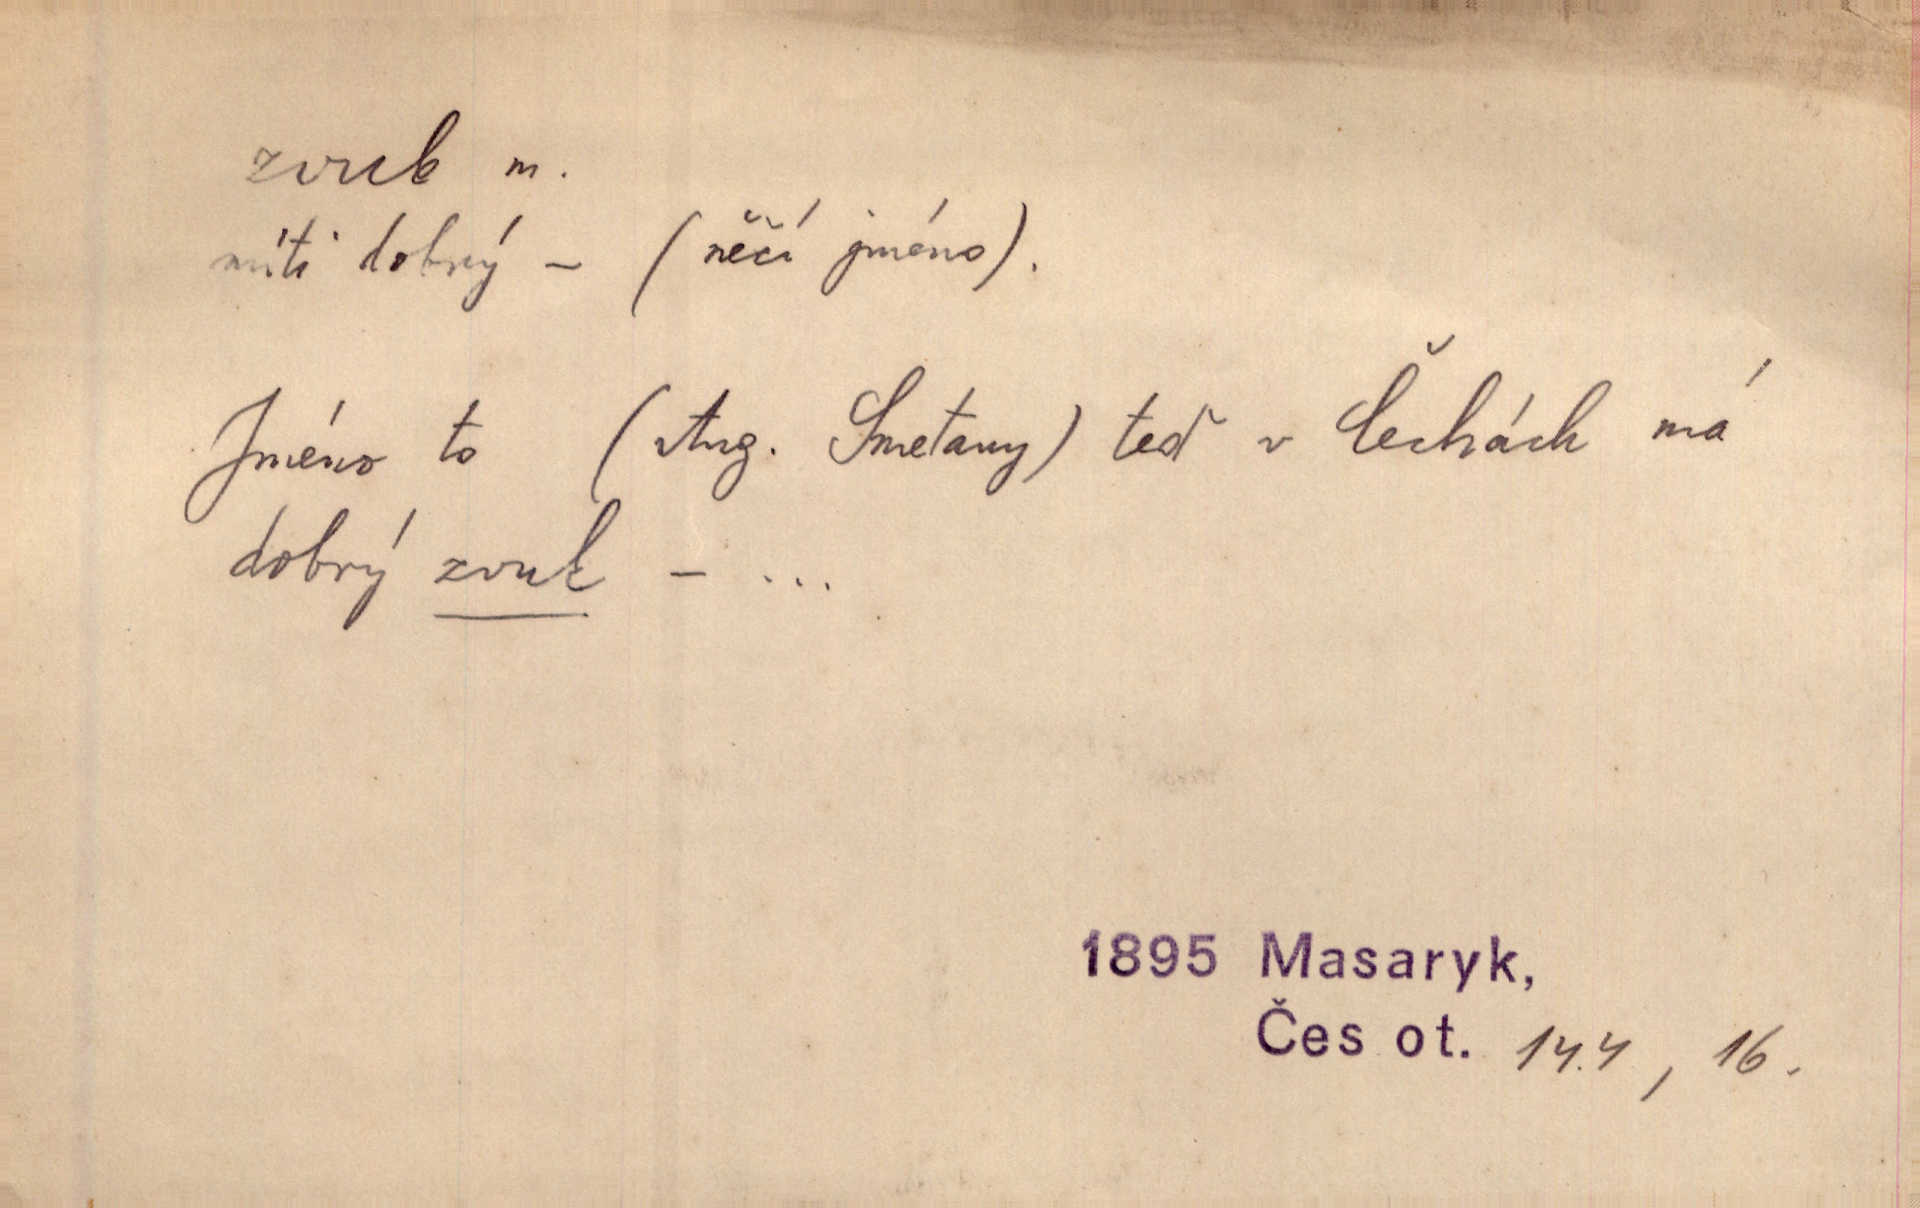 zvuk m.
míti dobrý – (něčí jméno).
Jméno to (Aug. Smetany) teď v Čechách má
dobrý zvuk – ...
1895 Masaryk,
Čes ot. , 16.